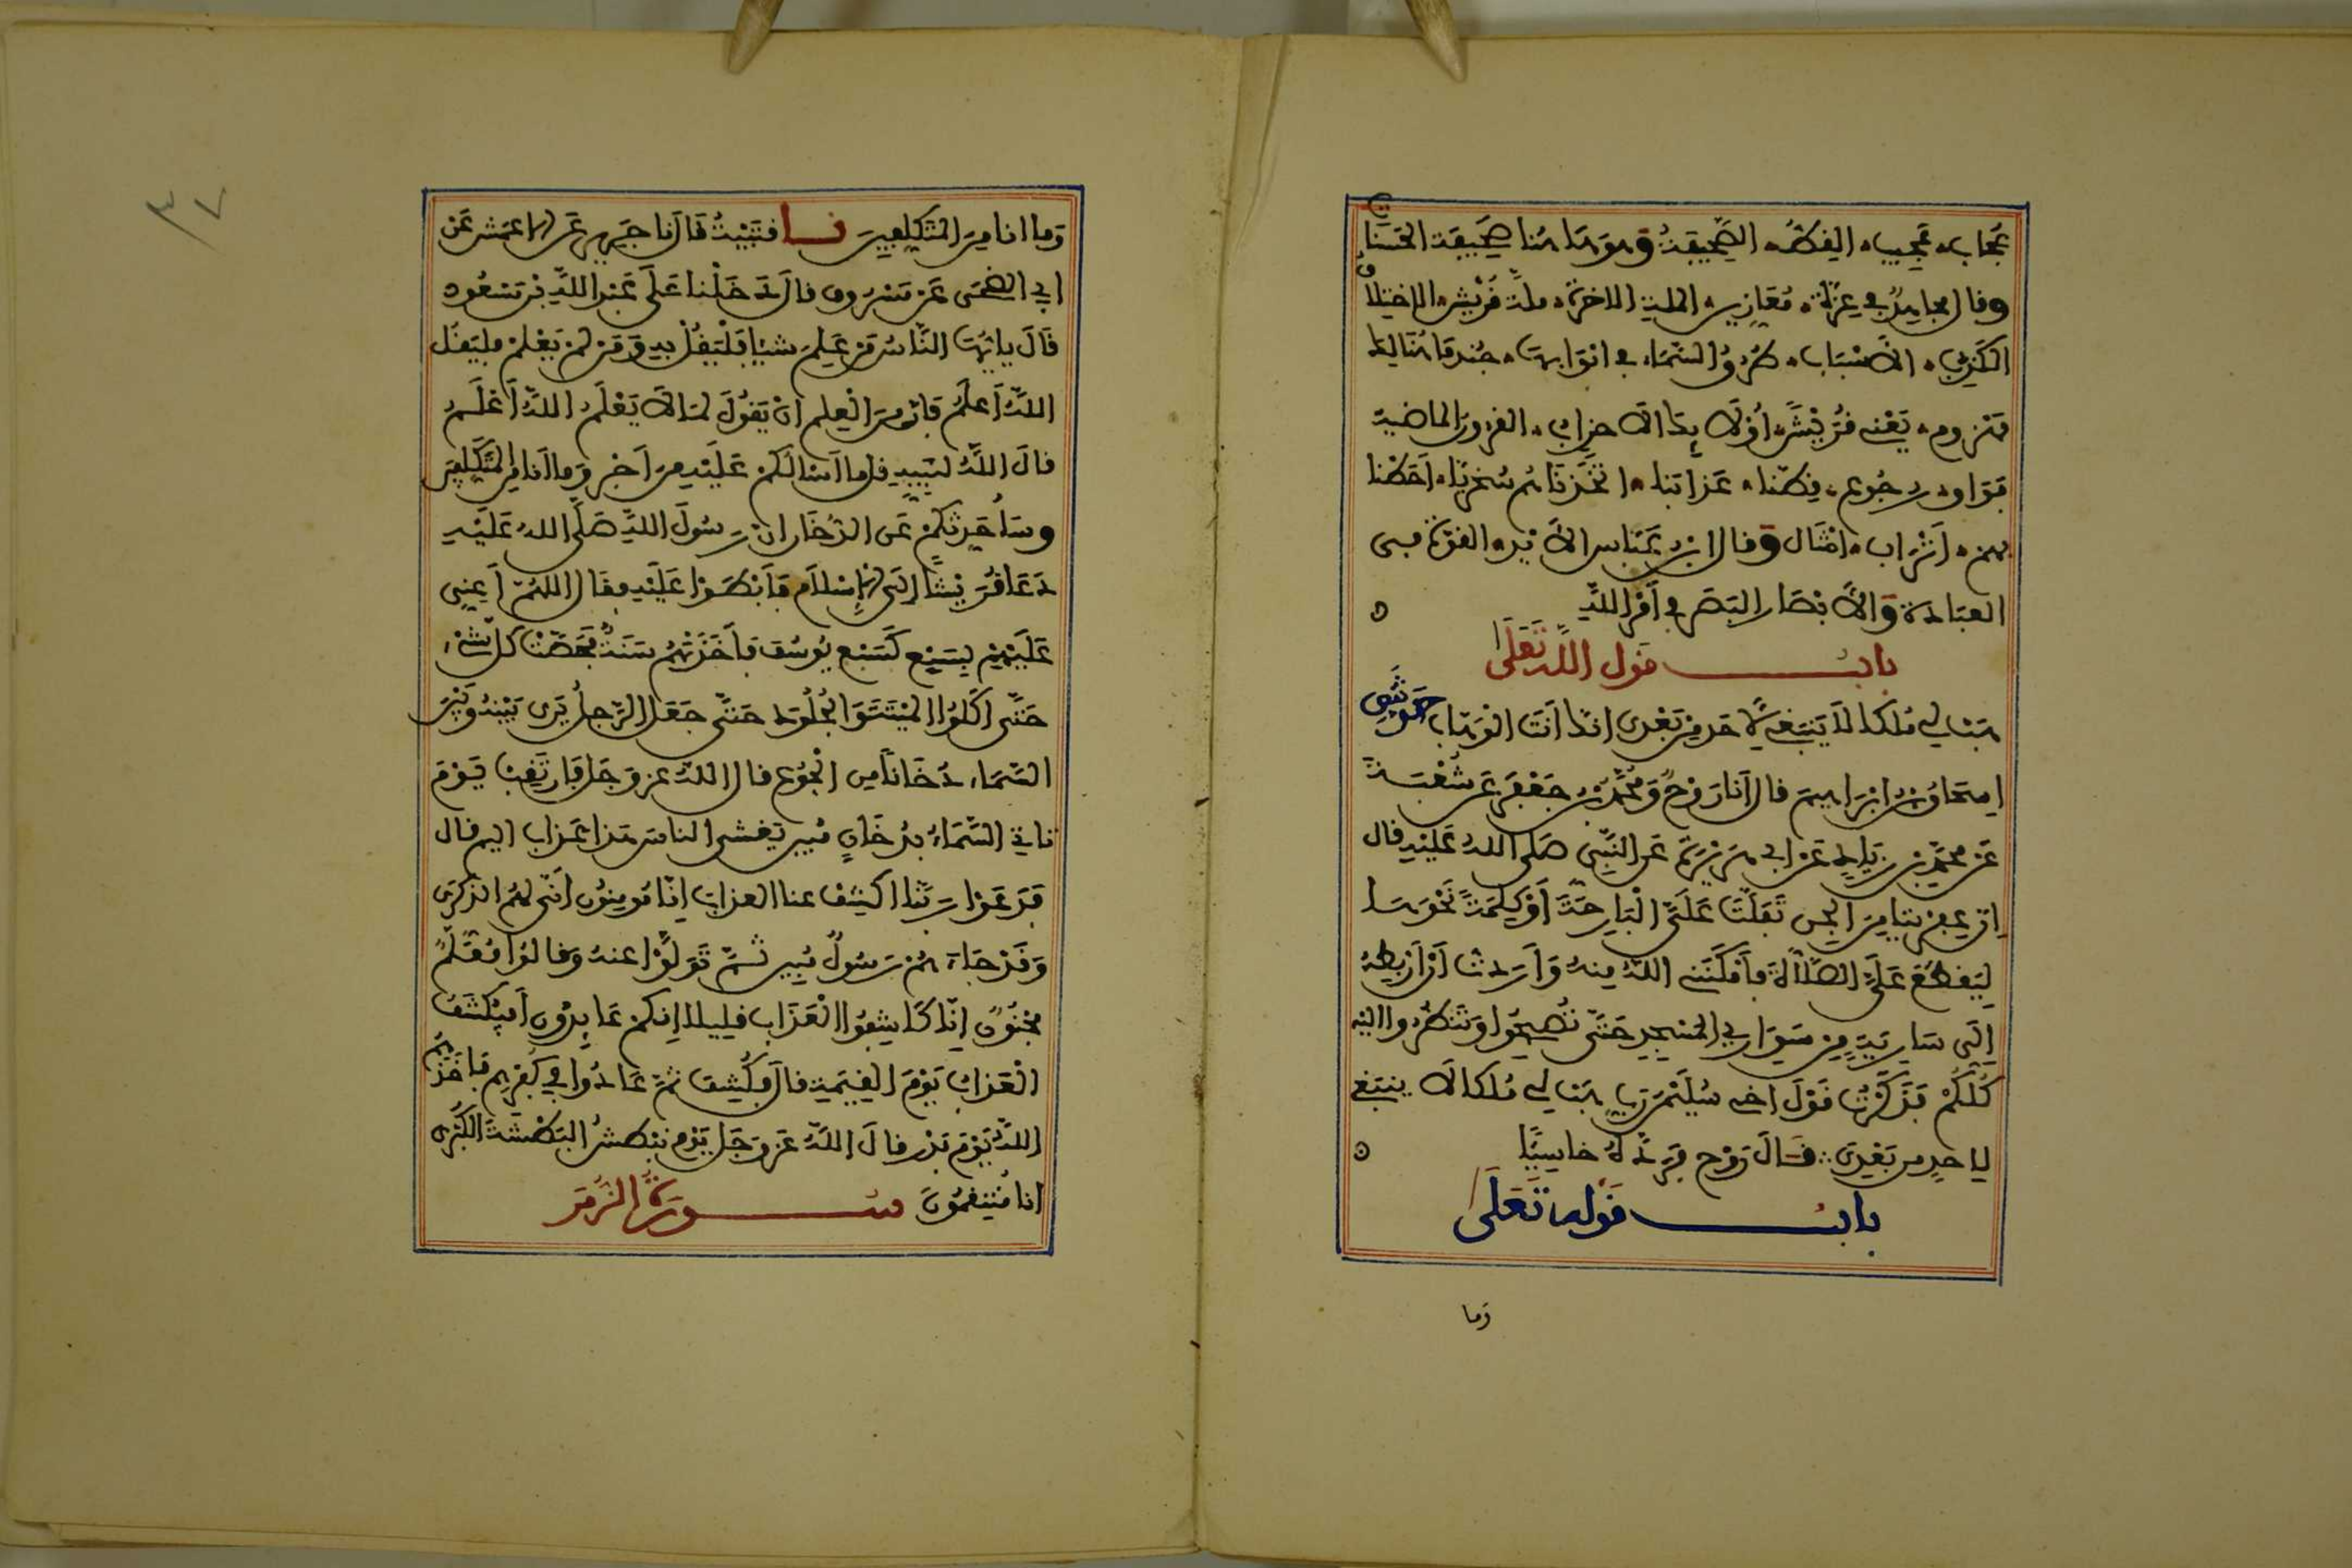 عجاب عجيب القط الصحيفة وهو هاهنا صحيفة الحسنات
وقال مجاهد في عزة معازين الملة الاخرة ملة قريش الاختلاق
الكذب الأسباب طرق السماء في ابوابها جند ما هنالك
مهزوم يعني قريشا اولئك الاحزاب القرون الماضية
فواق رجوع قطنا عذابنا اتخذناهم سخريا احطنا
بهم اتراب امثال وقال ابن عباس الأيد القوة في
العبادة والأبصار البصر في أمر الله
باب قول الله تعلى
هب لي ملكا لا ينبغي لاحد من بعدي انك انت الوهاب حدثني
اسحاق بن ابراهيم قال انا روح ومحمد بن جعفر عن شعبة
عن محمد بن زياد عن ابي هريرة عن النبي صلى الله عليه قال
ان عفريتا من الجن تفلت علي البارحة أو كلمة نحوها
ليقطع علي الصلاة فأمكنني الله منه وأردت أن أربطه
إلى سارية من سواري المسجد حتى تصبحوا وتنظروا اليه
كلكم فذكرت قول اخي سليمن رب هب لي ملكا لا ينبغي
لاحد من بعدي قال روح فرده خاسيا
باب قوله تعلى
وما
٣٧
وما انا من المتكلفين نا قتيبة قال نا جرير عن الاعمش عن
ابي الضحى عن مسروق قال دخلنا على عبد الله بن مسعود
قال يايها الناس من علم شيا فليقل به ومن لم يعلم فليقل
الله أعلم فان من العلم ان يقول لما لا يعلم الله أعلم
قال الله لنبيه قل ما اسالكم عليه من اجر وما انا من المتكلفين
وسأحدثكم عن الدخان ان رسول الله صلى الله عليه
دعا قريشا إلى الإسلام فأبطوا عليه فقال اللهم أعني
عليهم بسبع كسبع يوسف فأخذتهم سنة فحصت كل شيء
حتى اكلوا الميتة والجلود حتى جعل الرجل يرى بينه وبين
السماء دخانا من الجوع قال الله عز وجل فارتقب يوم
تاتي السماء بدخان مبين يغشى الناس هذا عذاب اليم قال
فدعوا ربنا اكشف عنا العذاب إنا مومنون أنى لهم الذكرى
وقد جاءهم رسول مبين ثم تولوا عنه وقالوا معلم
مجنون إنا كاشفوا العذاب قليلا إنكم عايدون أفيكشف
العذاب يوم القيمة قال فكشف ثم عادوا في كفرهم فاخذهم
الله يوم بدر قال الله عز وجل يوم نبطش البطشة الكبرى
انا منتقمون سورة الزمر